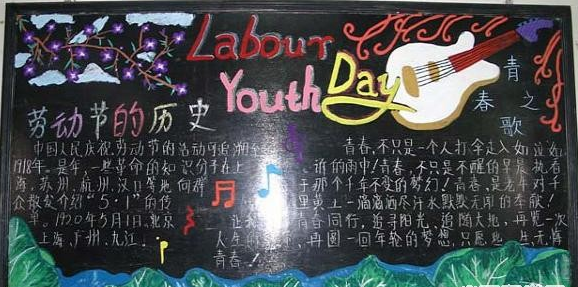 Labour
Youth Day
青春之歌
劳动节的历史
中国人民庆祝劳动节的活动可追溯至
1918年。是年，一些革命的知识分子在上
海、苏州、杭州、汉口等地向群
众散发介绍“5·1”的传
单。1920年5月1日，北京
上海、广州、九江、
青春，不只是一个人打伞走入如泣如
诉的雨中！青春，不只是不醒的早晨执着
于那个千年不变的梦幻！青春，是老牛对千
里黄土一滴滴尽汗水默默无闻的奉献！
让我们与青春同行，追寻阳光，追随大地，再览一次
人生的 再圆一回年轮的梦想，只愿此生无悔
青春！